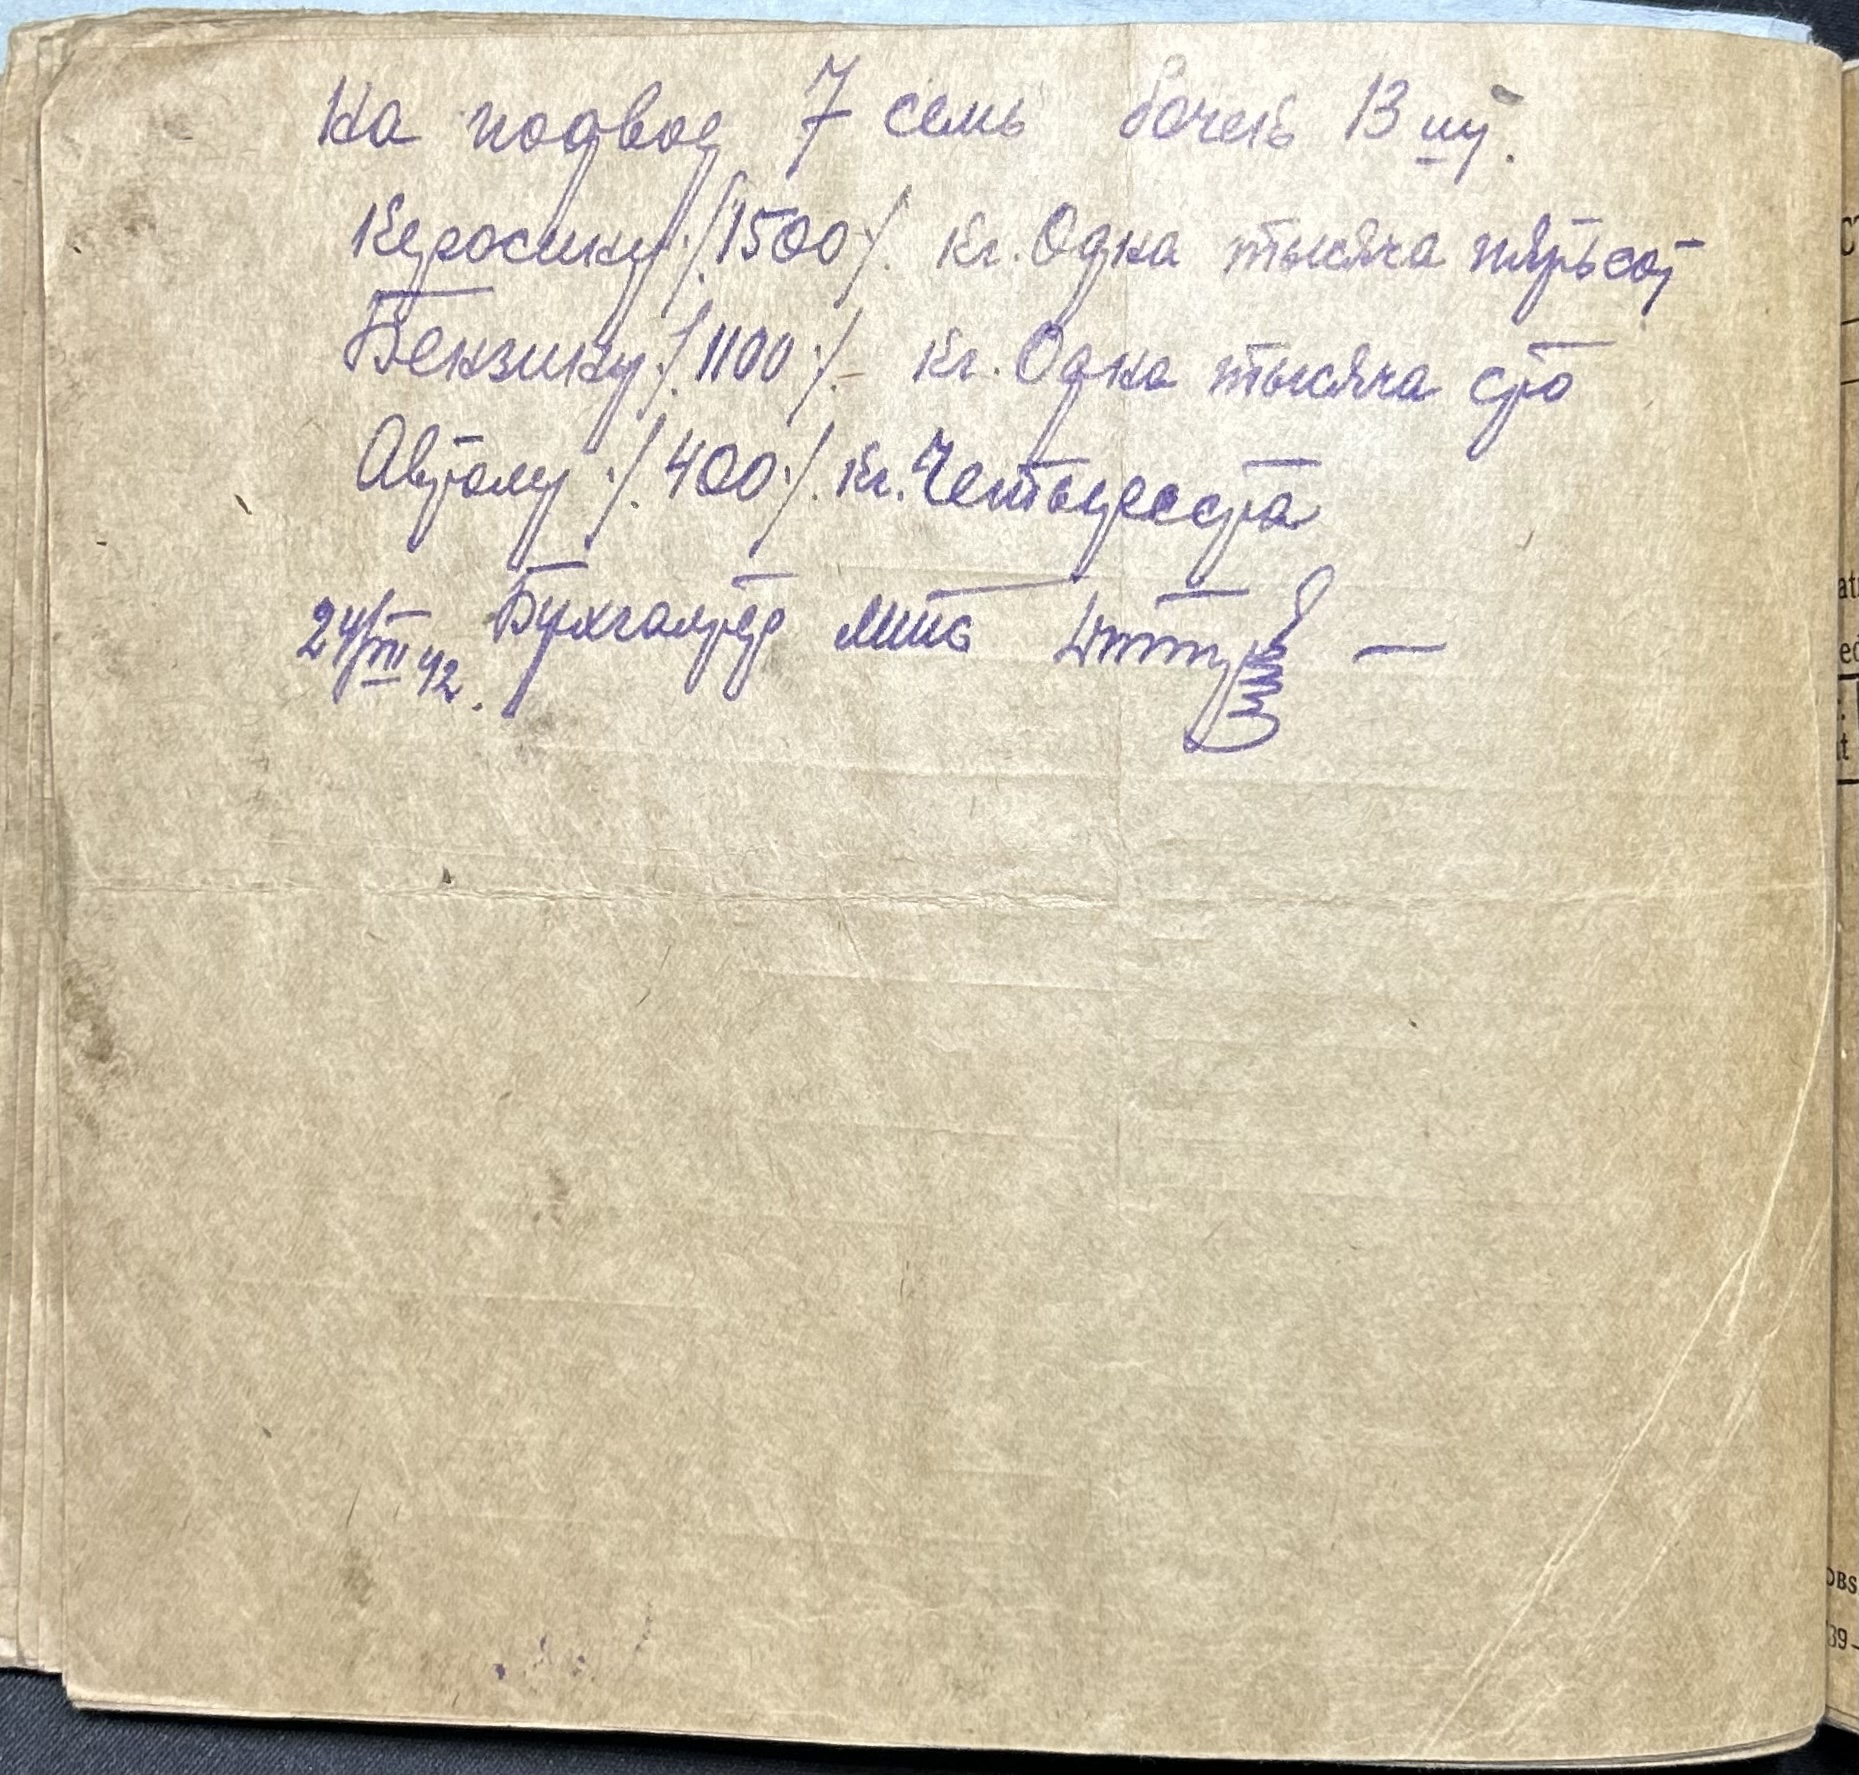 На подвод 7 семь бочек 13 шт.
Керосину ./.1500./. кг. Одна тысяча пятьсот
Бензину ./.1100./. кг. Одна тысяча сто
Автолу ./.400./. кг. Четыреста
24/VII 42. Бухгалтер МТС —
ст
at
ed
t
OBS
39